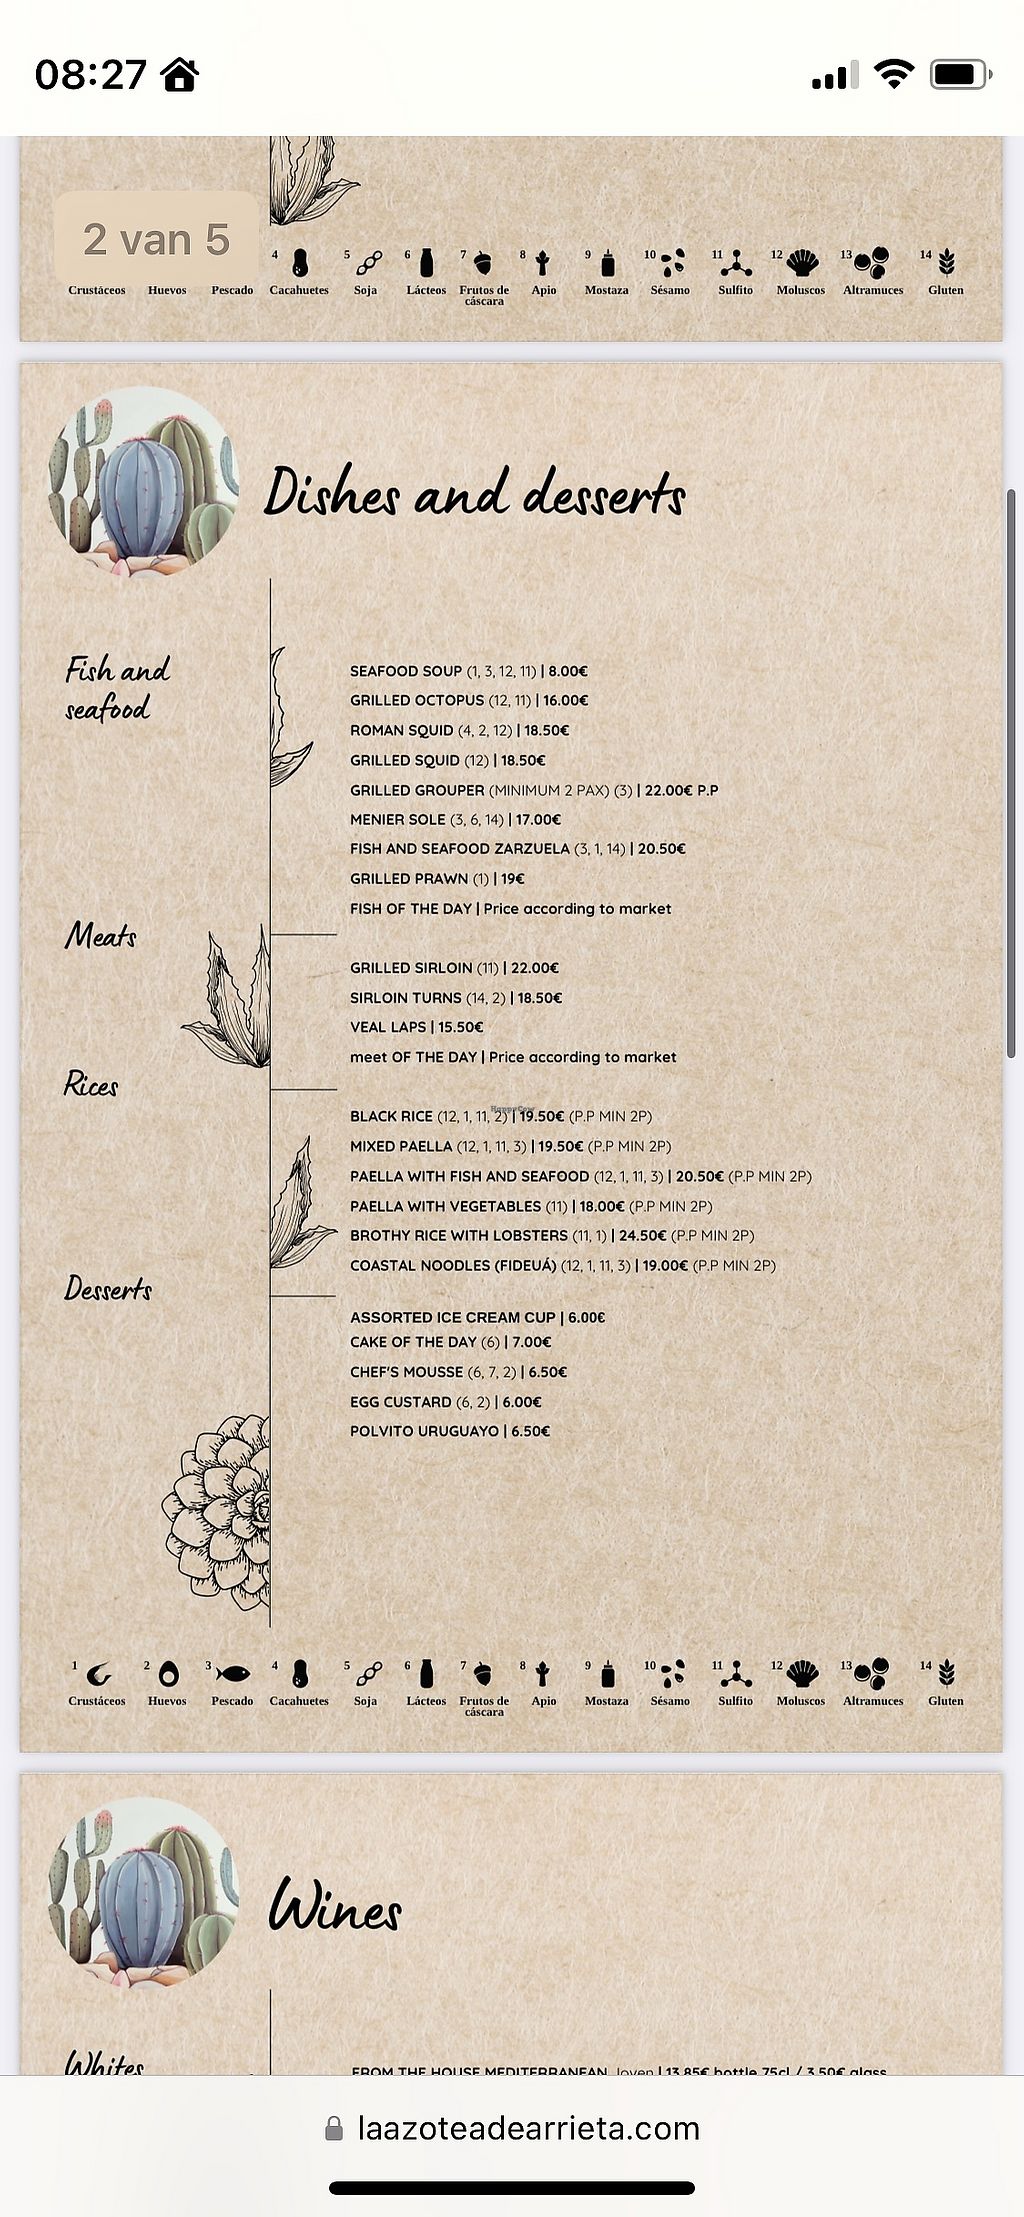 08:27
2 van 5
4 5 6 7 8 9 10 11 12 13 14
Crustáceos Huevos Pescado Cacahuetes Soja Lácteos Frutos de cáscara Apio Mostaza Sésamo Sulfito Moluscos Altramuces Gluten
Dishes and desserts
Fish and
seafood
SEAFOOD SOUP (1, 3, 12, 11) | 8.00€
GRILLED OCTOPUS (12, 11) | 16.00€
ROMAN SQUID (4, 2, 12) | 18.50€
GRILLED SQUID (12) | 18.50€
GRILLED GROUPER (MINIMUM 2 PAX) (3) | 22.00€ P.P
MENIER SOLE (3, 6, 14) | 17.00€
FISH AND SEAFOOD ZARZUELA (3, 1, 14) | 20.50€
GRILLED PRAWN (1) | 19€
FISH OF THE DAY | Price according to market
Meats
GRILLED SIRLOIN (11) | 22.00€
SIRLOIN TURNS (14, 2) | 18.50€
VEAL LAPS | 15.50€
meet OF THE DAY | Price according to market
Rices
HappyCow
BLACK RICE (12, 1, 11, 2) | 19.50€ (P.P MIN 2P)
MIXED PAELLA (12, 1, 11, 3) | 19.50€ (P.P MIN 2P)
PAELLA WITH FISH AND SEAFOOD (12, 1, 11, 3) | 20.50€ (P.P MIN 2P)
PAELLA WITH VEGETABLES (11) | 18.00€ (P.P MIN 2P)
BROTHY RICE WITH LOBSTERS (11, 1) | 24.50€ (P.P MIN 2P)
COASTAL NOODLES (FIDEUÁ) (12, 1, 11, 3) | 19.00€ (P.P MIN 2P)
Desserts
ASSORTED ICE CREAM CUP | 6.00€
CAKE OF THE DAY (6) | 7.00€
CHEF'S MOUSSE (6, 7, 2) | 6.50€
EGG CUSTARD (6, 2) | 6.00€
POLVITO URUGUAYO | 6.50€
1 2 3 4 5 6 7 8 9 10 11 12 13 14
Crustáceos Huevos Pescado Cacahuetes Soja Lácteos Frutos de cáscara Apio Mostaza Sésamo Sulfito Moluscos Altramuces Gluten
Wines
Whites
FROM THE HOUSE MEDITERRANEAN Joven | 13.85€ bottle 75cl / 3.50€ glass
laazoteadearrieta.com